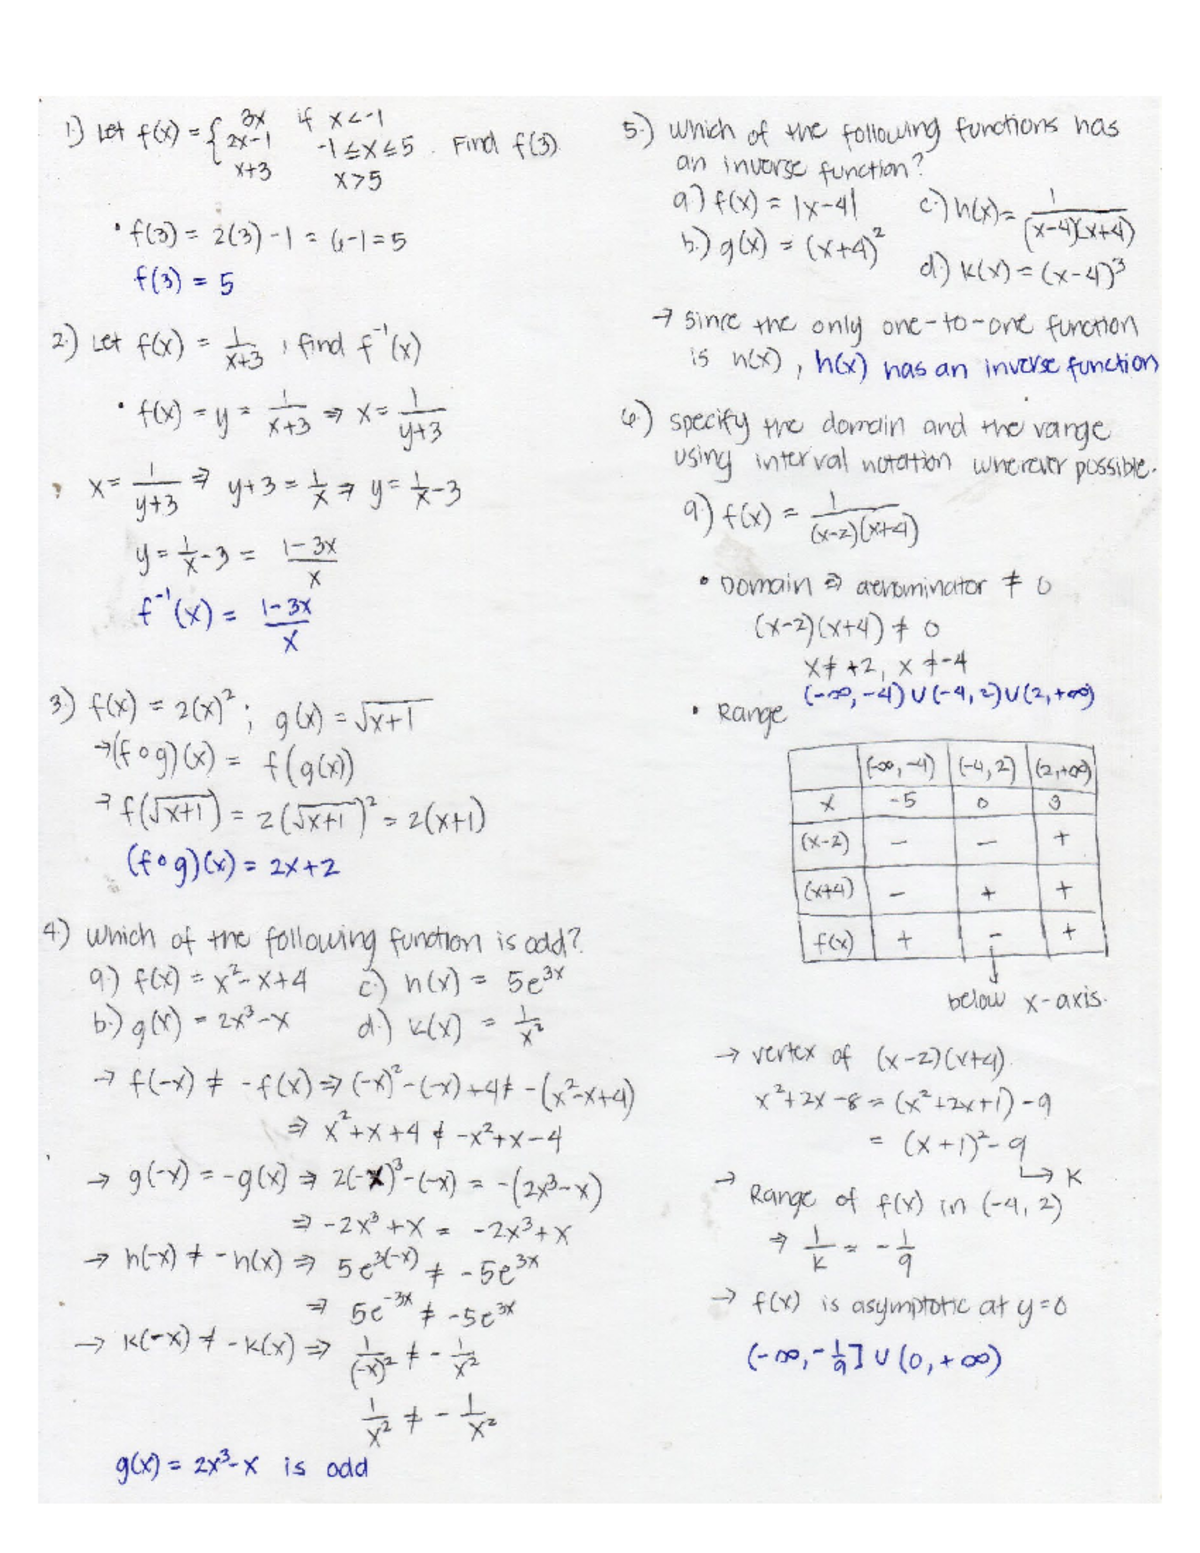 1.) Let f(x) = { 3x if x < -1
2x-1 -1 ≤ x ≤ 5 . Find f(3)
x+3 x > 5
• f(3) = 2(3) - 1 = 6-1 = 5
f(3) = 5
2.) Let f(x) = 1/(x+3) , find f⁻¹(x)
• f(x) = y = 1/(x+3) ⇒ x = 1/(y+3)
x = 1/(y+3) ⇒ y+3 = 1/x ⇒ y = 1/x - 3
y = 1/x - 3 = (1-3x)/x
f⁻¹(x) = (1-3x)/x
3.) f(x) = 2(x)² ; g(x) = √(x+1)
→ (f∘g)(x) = f(g(x))
→ f(√(x+1)) = 2(√(x+1))² = 2(x+1)
(f∘g)(x) = 2x+2
4.) which of the following function is odd?
a.) f(x) = x² - x + 4 c.) h(x) = 5e³ˣ
b.) g(x) = 2x³ - x d.) k(x) = 1/x²
→ f(-x) ≠ -f(x) ⇒ (-x)² - (-x) + 4 ≠ -(x² - x + 4)
⇒ x² + x + 4 ≠ -x² + x - 4
→ g(-x) = -g(x) ⇒ 2(-x)³ - (-x) = -(2x³ - x)
⇒ -2x³ + x = -2x³ + x
→ h(-x) ≠ -h(x) ⇒ 5e³⁽⁻ˣ⁾ ≠ -5e³ˣ
⇒ 5e⁻³ˣ ≠ -5e³ˣ
→ k(-x) ≠ -k(x) ⇒ 1/(-x)² ≠ - 1/x²
1/x² ≠ - 1/x²
g(x) = 2x³ - x is odd
5.) which of the following functions has
an inverse function?
a.) f(x) = |x-4| c.) h(x) = 1/((x-4)(x+4))
b.) g(x) = (x+4)² d.) k(x) = (x-4)³
→ since the only one-to-one function
is h(x) , h(x) has an inverse function
6.) specify the domain and the range
using interval notation wherever possible.
a.) f(x) = 1/((x-2)(x+4))
• Domain ⇒ denominator ≠ 0
(x-2)(x+4) ≠ 0
x ≠ +2, x ≠ -4
(-∞, -4) ∪ (-4, 2) ∪ (2, +∞)
• Range
(-∞, -4) (-4, 2) (2, +∞)
x -5 0 3
(x-2) - - +
(x+4) - + +
f(x) + - +
below x-axis.
→ vertex of (x-2)(x+4).
x² + 2x - 8 = (x² + 2x + 1) - 9
= (x+1)² - 9
↳ K
→ Range of f(x) in (-4, 2)
⇒ 1/k = - 1/9
→ f(x) is asymptotic at y = 0
(-∞, -1/9] ∪ (0, +∞)